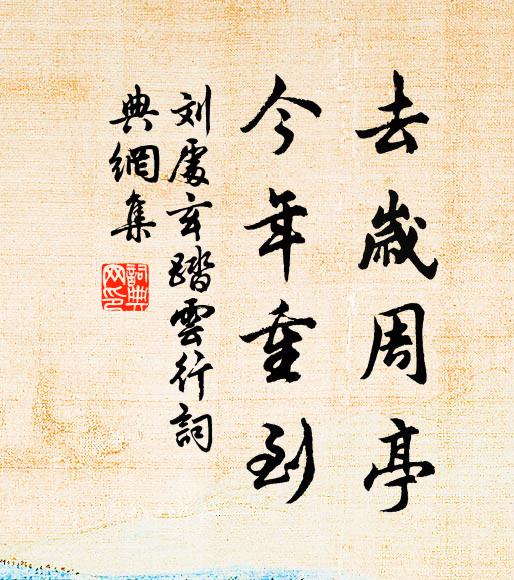 去歲周亭
今年重到
刘處玄踏雲行詞
典網集
詞典網印